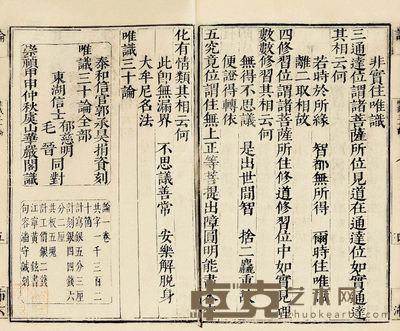 非實住唯識
三通達位謂諸菩薩所住見道在通達位如實通達
其相云何
若時於所緣 智都無所得 爾時住唯識
離二取相故
四修習位謂諸菩薩所住修道修習位中如實見理
數數修習其相云何
無得不思議 是出世間智 捨二麤重
便證得轉依
五究竟位謂住無上正等菩提出障圓明能盡
化有情類其相云何
此即無漏界 不思議善常 安樂解脫身
大牟尼名法
唯識三十論
泰和信官郭承昊捐資刻
唯識三十論全部
東湖信士郁慈明
毛晉同對
崇禎甲申仲秋虞山華嚴閣識
論一卷
共字一千三百二
十箇
計寫銀五分三厘